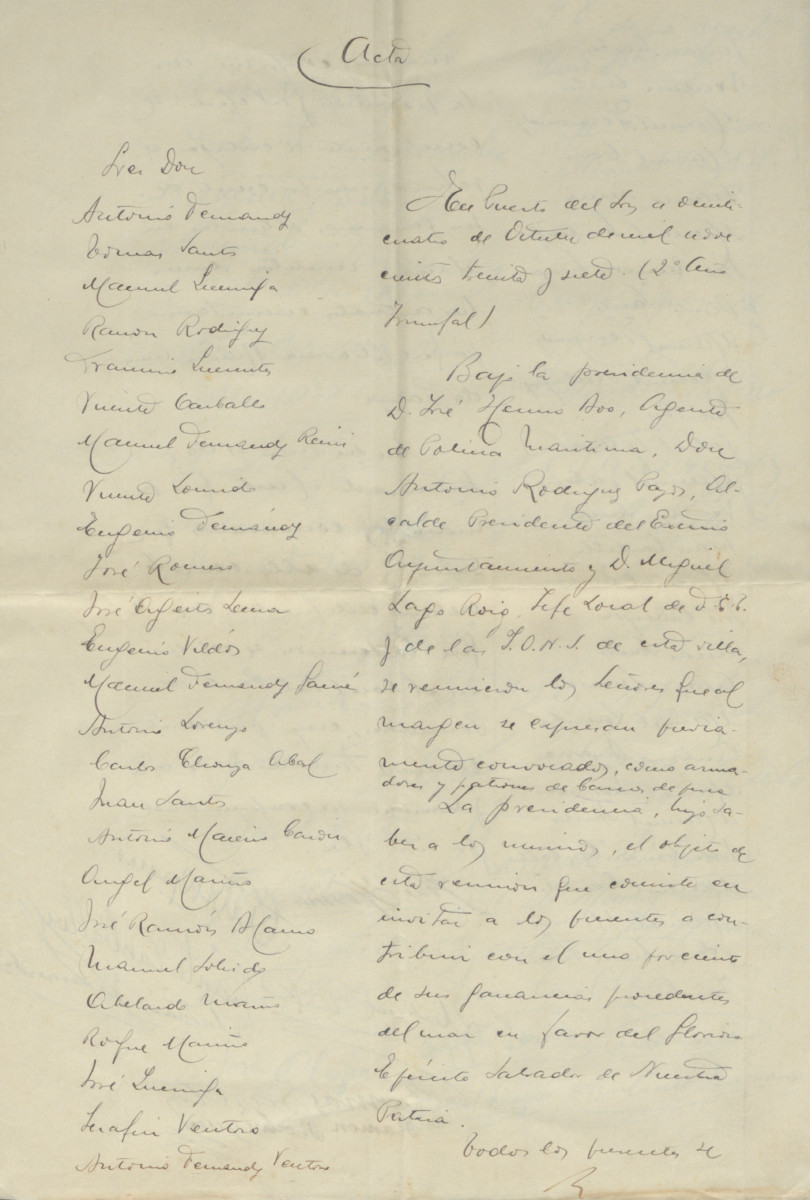 Acta
Sres Don
Antonio Fernandez
Tomas Santos
Manuel
Ramon Rodriguez
Francisco
Vicente Carballo
Manuel Fernandez
Vicente
Eugenio Fernández
José Romero
José
Eugenio
Manuel Fernandez
Antonio Lorenzo
Carlos Abal
Juan Santos
Antonio
Angel Mariño
José Ramón
Manuel
Abelardo Mariño
Roque Mariño
José
Serafin Ventoso
Antonio Fernandez Ventoso
En Puerto del Son a veinti-
cuatro de Octubre de mil nove
cientos treinta y siete. (2º Año
Triunfal)
Bajo la presidencia de
D. José Agente
de Policia Maritima, Don
Antonio Rodriguez Al-
calde Presidente del Excmo
Ayuntamiento y D. Miguel
Lago Roig, Jefe Local de F.E.T.
y de las J.O.N.S. de esta villa,
se reunieron los Señores que al
margen se expresan previa-
mente convocados, como arma-
dores y patrones de barcos de pesca
La presidencia, hizo sa-
ber a los mismos, el objeto de
esta reunion que consiste en
invitar a los presentes a con-
tribuir con el uno por ciento
de sus ganancias procedentes
del mar en favor del Glorioso
Ejército Salvador de Nuestra
Patria.
Todos los presentes se